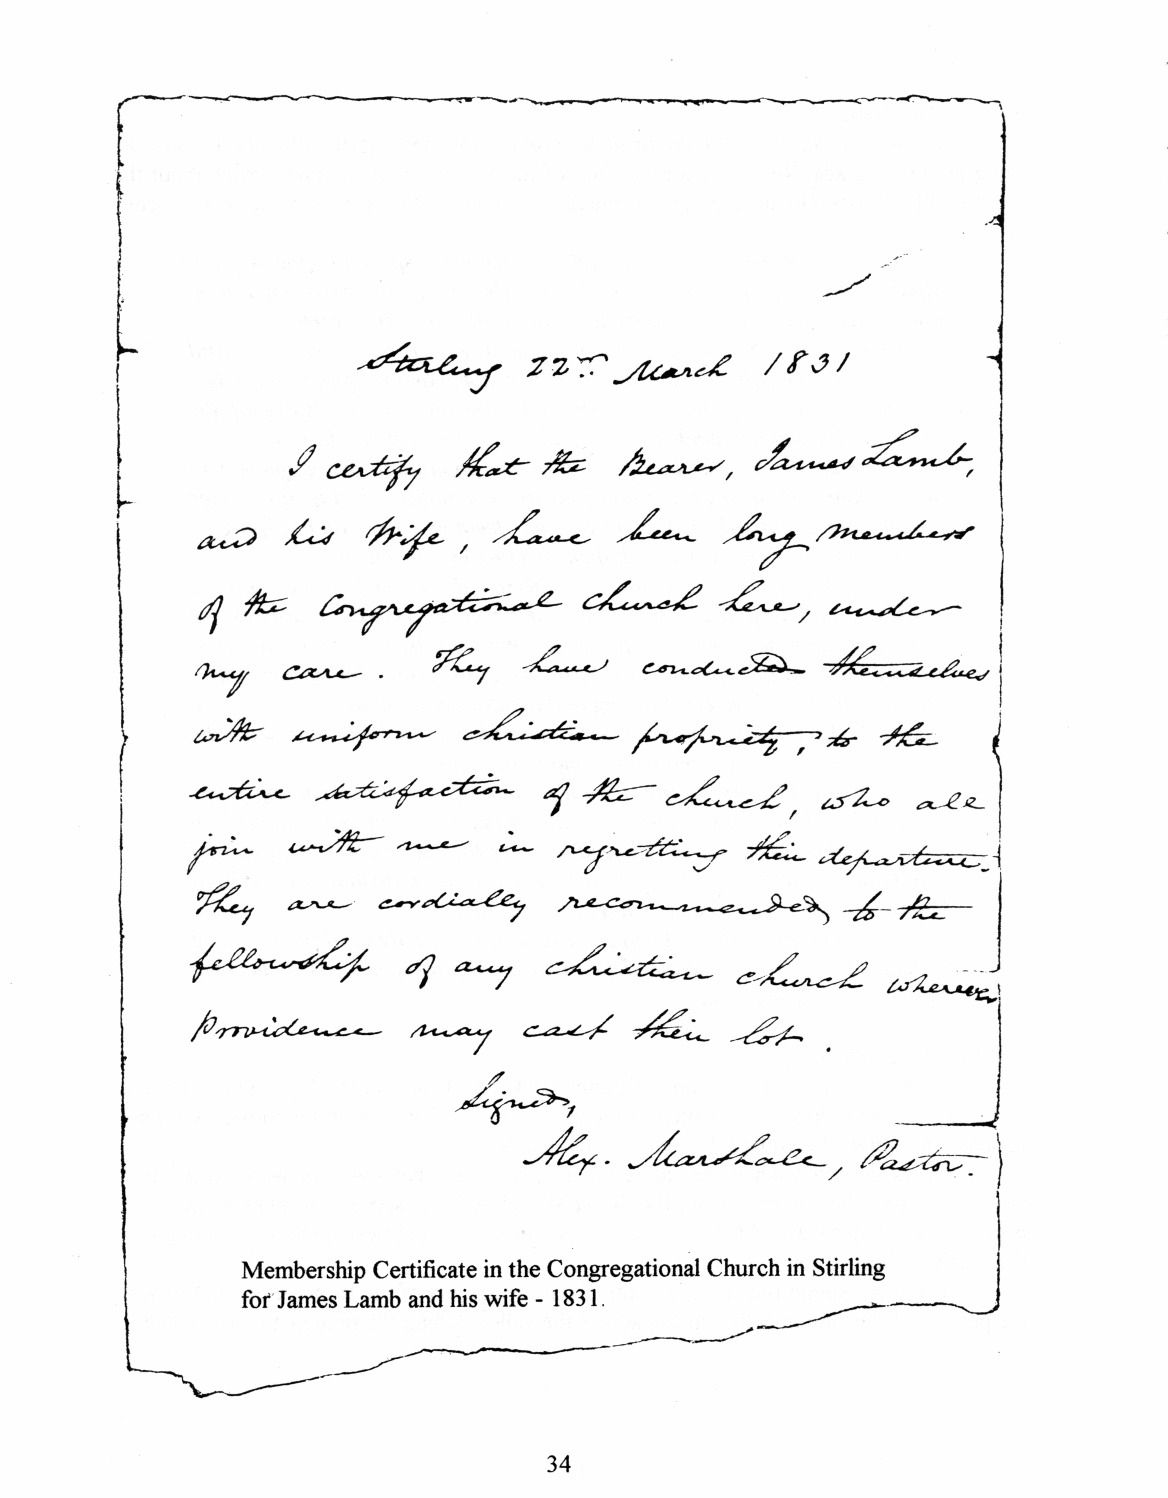 Stirling 22nd March 1831
I certify that the Bearer, James Lamb,
and his Wife, have been long members
of the Congregational church here, under
my care. They have conducted themselves
with uniform christian propriety, to the
entire satisfaction of the church, who all
join with me in regretting their departure.
They are cordially recommended to the
fellowship of any christian church wherever
Providence may cast their lot.
Signed,
Alex. Marshall, Pastor.
Membership Certificate in the Congregational Church in Stirling
for James Lamb and his wife - 1831.
34